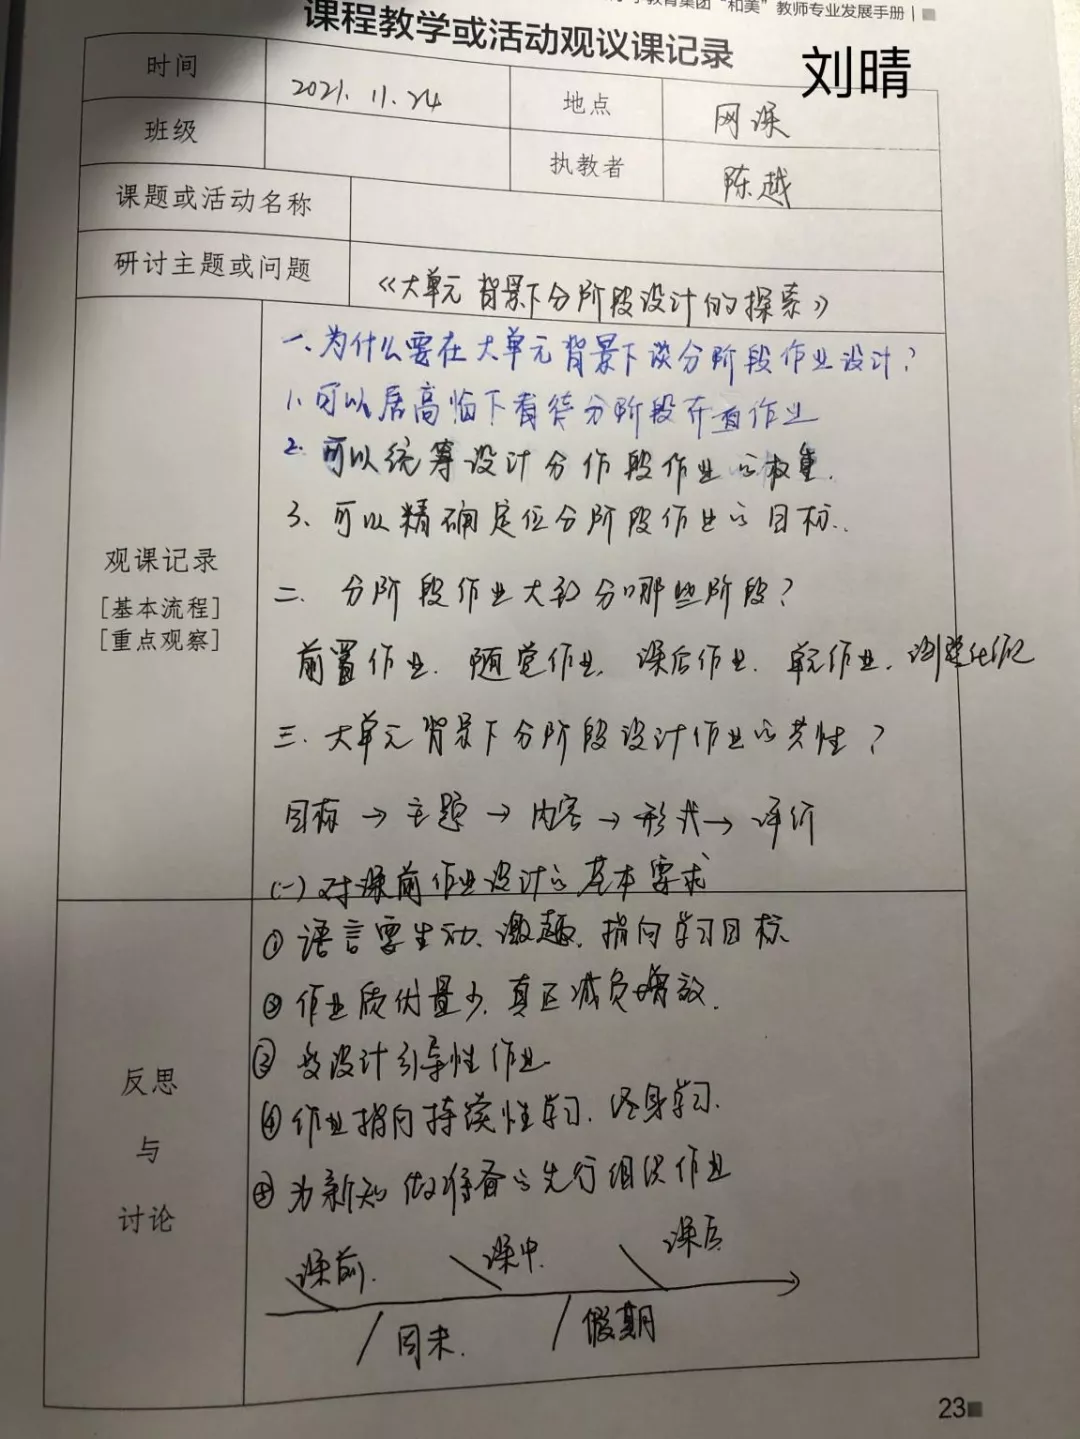 教育集团“和美”教师专业发展手册
课程教学或活动观议课记录
刘晴
时间 2021.11.24 地点 网课
班级 执教者 陈越
课题或活动名称
研讨主题或问题 《大单元背景下分阶段设计的探索》
观课记录
[基本流程]
[重点观察]
一、为什么要在大单元背景下谈分阶段作业设计?
1.可以居高临下看待分阶段在作业
2.可以统筹设计分作段作业的权重.
3、可以精确定位分阶段作业的目标.
二、分阶段作业大致分哪些阶段?
前置作业.随堂作业.课后作业.单元作业.
三.大单元背景下分阶段设计作业的共性?
目标→主题→内容→形式→评价
(一)对课前作业设计的基本要求
反思
与
讨论
①语言要生动、激趣.指向学习目标
②作业质优量少.真正减负增效.
③要设计引导性作业.
④作业指向持续性学习.终身学习.
⑤为新知做准备的先行组织作业
课前. 课中. 课后
周末. 假期
23